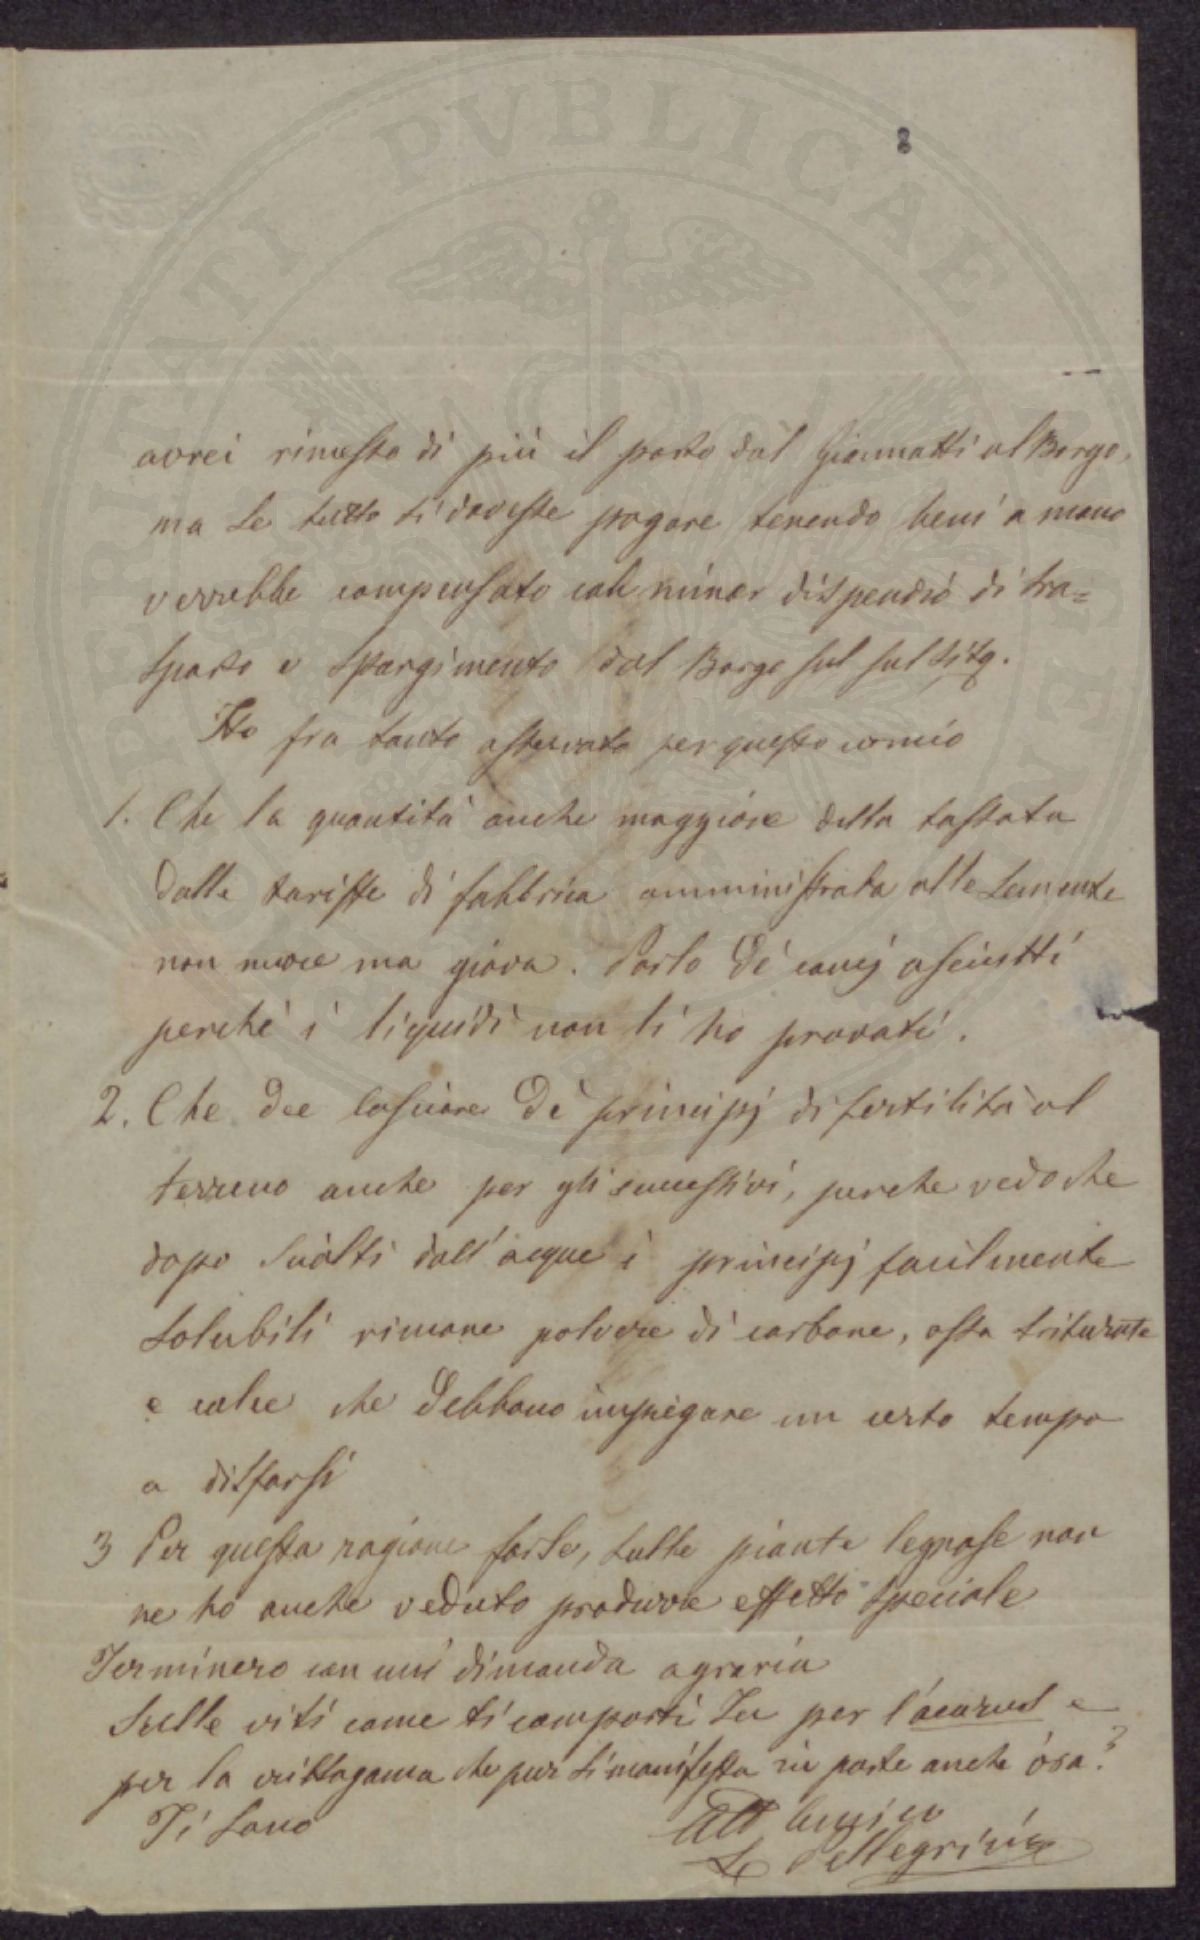 PROSPERITATI PVBLICAE AVGENDAE
avrei rimesso di più il porto dal Giannatti al Borgo,
ma se tutto si dovesse pagare tenendo beni a mano
verrebbe compensato col minor dispendio di tra=
sporto e spargimento dal Borgo sul sul sito.
Ho fra tanto osservato per questo concio
1. Che la quantità anche maggiore della tassata
dalle tariffe di fabbrica amministrata alle semente
non nuoce ma giova. Parlo de' concj asciutti
perchè i liquidi non li ho provati.
2. Che dee lasciare de' principj di fertilità al
terreno anche per gli successivi, perche vedo che
dopo sciolti dall'acque i principj facilmente
solubili rimane polvere di carbone, ossa triturate
e calce che debbono impiegare un certo tempo
a disfarsi
3 Per questa ragione forse, sulle piante legnose non
ne ho anche veduto produrre effetto speciale
Terminero con una dimanda agraria
Sulle viti come ti comporti Tu per l'acarus e
per la crittogama che pur si manifesta in parte anche ora?
Ti sono
Aff Amico
L Pellegrini